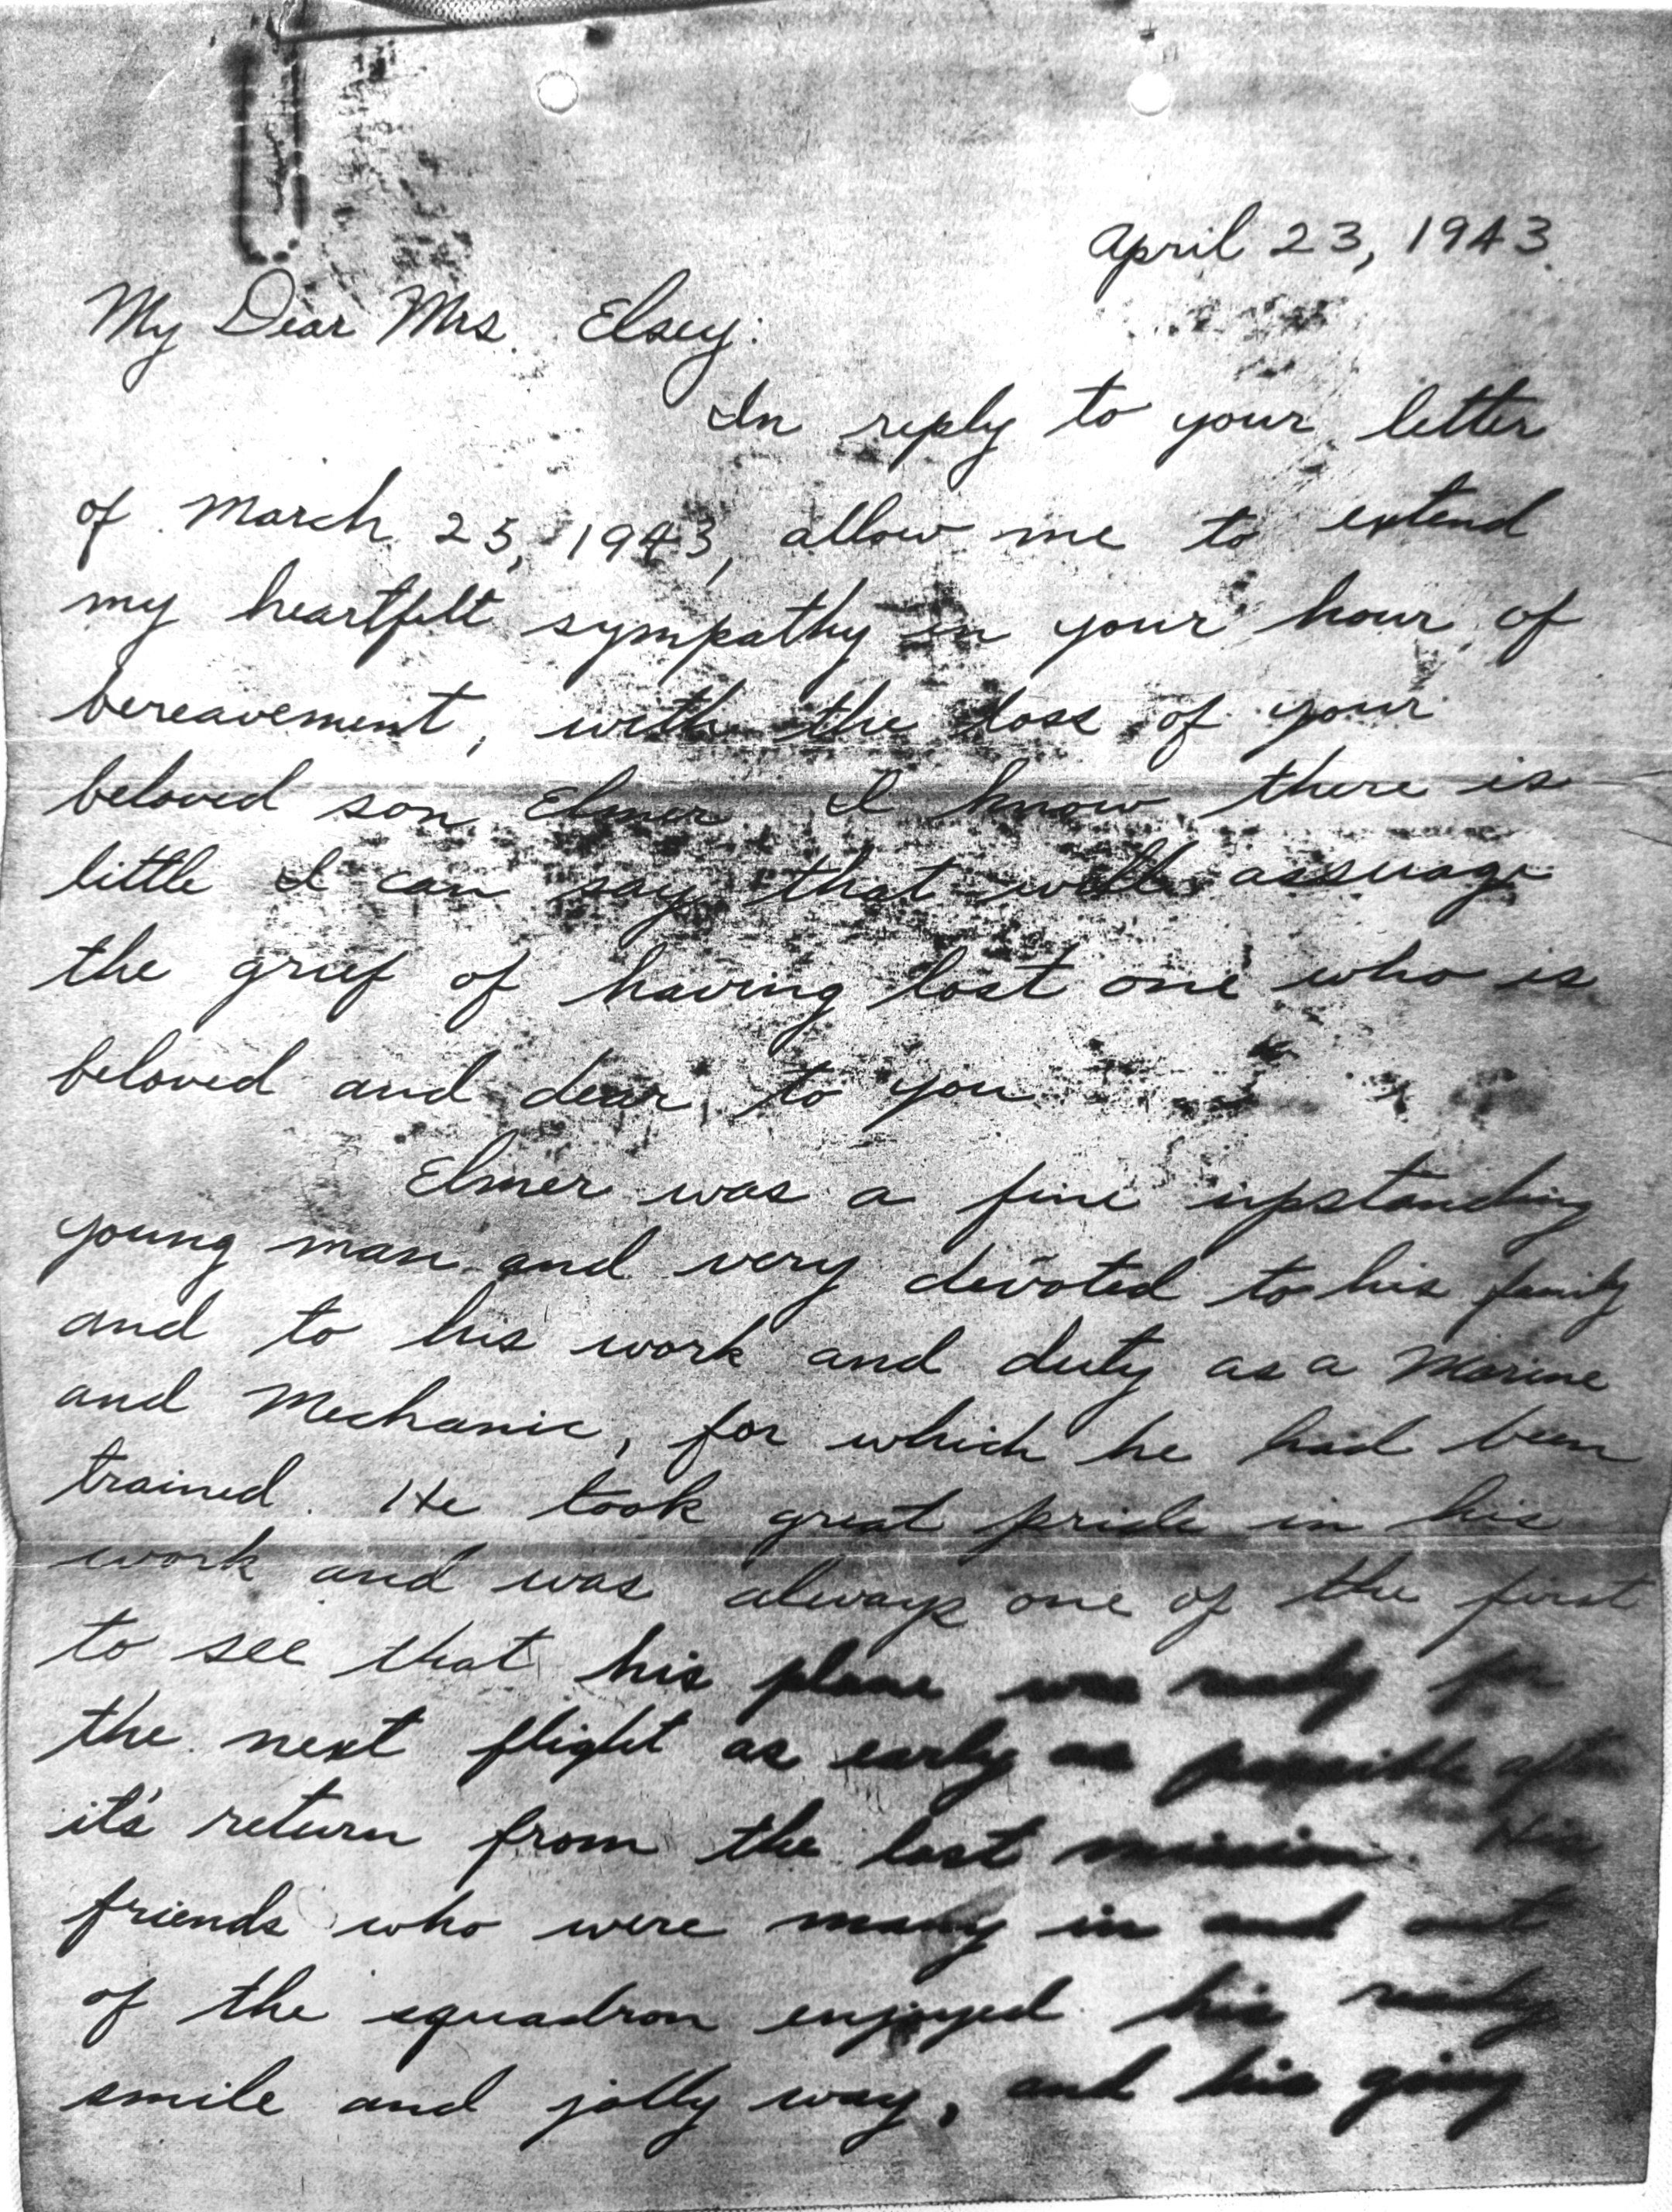 April 23, 1943.
My Dear Mrs. Elsey:
In reply to your letter
of March 25, 1943, allow me to extend
my heartfelt sympathy in your hour of
bereavement, with the loss of your
beloved son Elmer I know there is
little I can say that will assuage
the grief of having lost one who is
beloved and dear to you
Elmer was a fine upstanding
young man and very devoted to his family
and to his work and duty as a Marine
and Mechanic, for which he had been
trained. He took great pride in his
work and was always one of the first
to see that his plane was ready for
the next flight as early as possible after
it's return from the last mission. His
friends who were many in and out
of the squadron enjoyed his ready
smile and jolly way, and his going